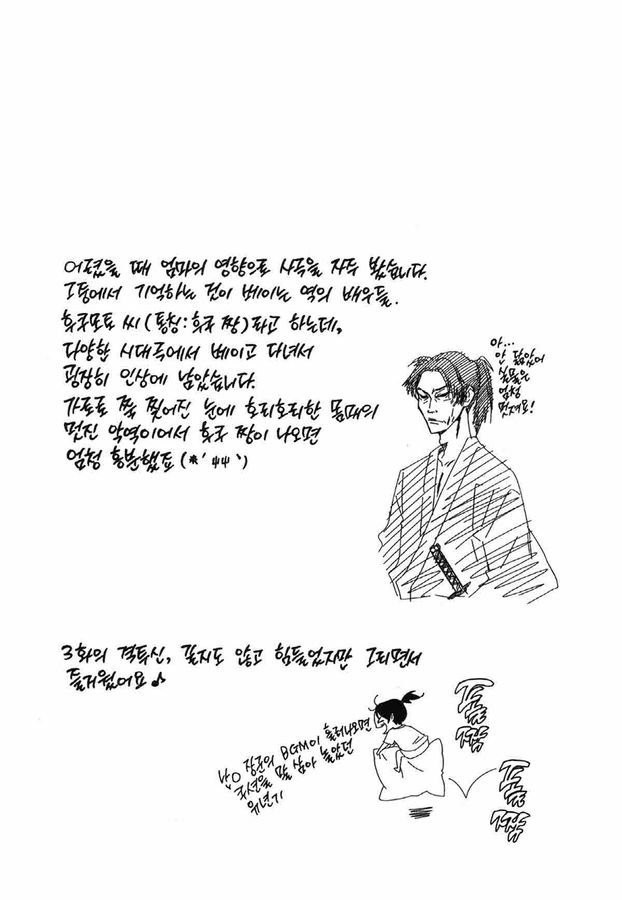 어렸을 때 엄마의 영향으로 사극을 자주 봤습니다.
그중에서 기억하는 것이 베이는 역의 배우들.
후쿠모토 씨 (통칭:후쿠 짱)라고 하는데,
다양한 시대극에서 베이고 다녀서
굉장히 인상에 남았습니다.
가로로 쭉 찢어진 눈에 호리호리한 몸매의
멋진 악역이어서 후쿠 짱이 나오면
엄청 흥분했죠 (*´ㅛㅛ`)
아...
안 닮았어
실물은
엄청
멋져요!
3화의 격투신, 길지도 않고 힘들었지만 그리면서
즐거웠어요♪
난O 장군의 BGM이 흘러나오면
쿠션을 말 삼아 놀았던
유년기